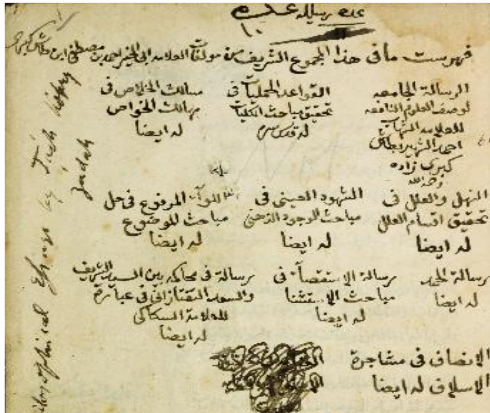 عدد رسائله عدد ١٠
فهرست ما فى هذا المجموع الشريف من مولفات العلامه ابى الخير احمد بن مصطفى ابن طاش كبرى
الرسالة الجامعه لوصف العلوم النافعه للعلامه احمد الشهير بطاش كبرى زاده رحمه الله
القواعد الجمليات فى تحقيق مباحث الكليات له
مسالك الخلاص فى مهالك الخواص له ايضا
المنهل والعلل فى تحقيق اقسام العلل له ايضا
الشهود العينى فى مباحث الوجود الذهنى له ايضا
اللوآء المرفوع فى حل مباحث الموضوع له ايضا
رسالة الحمد له ايضا
رسالة الاستقصآء فى مباحث الاستثنا له ايضا
رسالة فى محاكمة بين السيد الشريف والسعد التفتازانى فى عبارة للعلامة السكاكى له ايضا
الانصاف فى مشاجرة الاسلاف له ايضا
Philosophical Essays by Tash Kopry Zadah